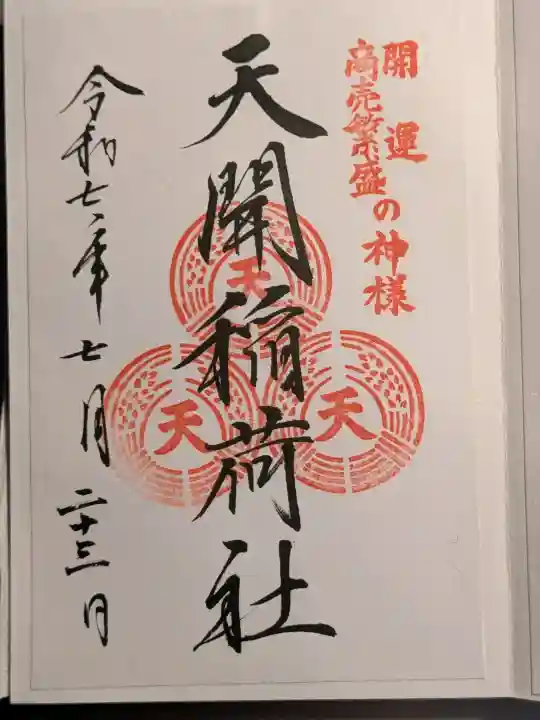 開運
商売繁盛
の神様
天開稲荷社
天
天
天
令和七年七月二十三日